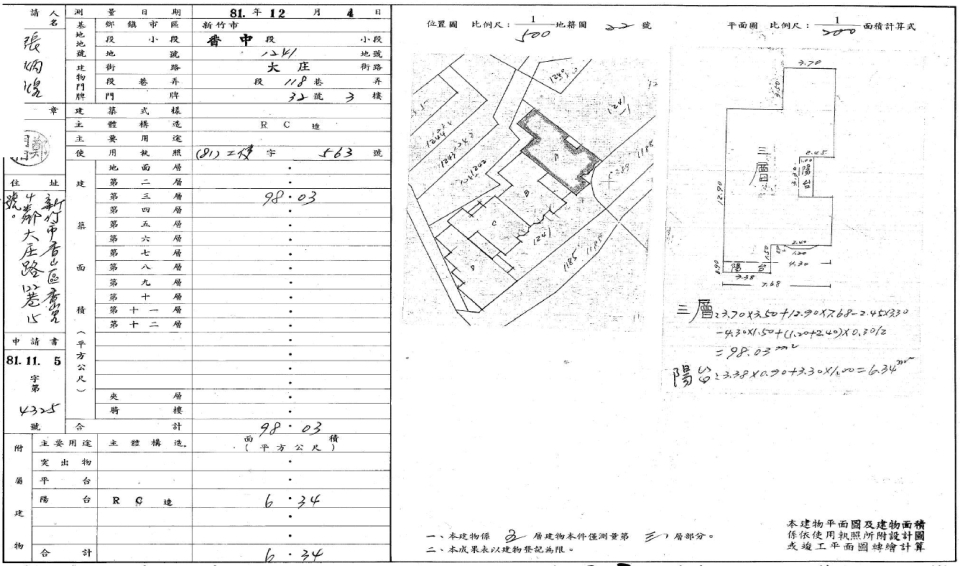 請人
姓名
測量日期 81.年12月4日
基地地號 鄉鎮市區 新竹市
段 小段 香中段 小段
地號 1241 地號
建物門牌 街路 大庄 街路
段巷弄 段118巷 弄
門牌 32號3樓
章
建築式樣
主體構造 RC造
主要用途
使用執照 (81)工使字 563 號
住址
新竹市香山區
大庄路
號。
建築面積(平方公尺)
地面層 .
第二層 .
第三層 98.03
第四層 .
第五層 .
第六層 .
第七層 .
第八層 .
第九層 .
第十層 .
第十一層 .
第十二層 .
夾層 .
騎樓 .
合計 98.03
申請書
81.11.5
字第
4325
號
附屬建物
主要用途 主體構造 面積(平方公尺)
突出物 .
平台 .
陽台 RC造 6.34
合計 6.34
位置圖 比例尺:1/500 地籍圖 22 號
1241
1185
1185
C
B
平面圖 比例尺:1/200 面積計算式
3.70
2.45
陽台
三層
12.90
0.90
陽台
3.38
4.30
7.68
2.40
1.20
三層:3.70×3.50+12.90×7.68-2.45×3.30
-4.30×1.50+(1.20+2.40)×0.30/2
=98.03m²
陽台:3.38×0.90+3.30×1.00=6.34m²
一、本建物係 五 層建物本件僅測量第 三 層部分。
二、本成果表以建物登記為限。
本建物平面圖及建物面積
係依使用執照所附設計圖
或竣工平面圖轉繪計算